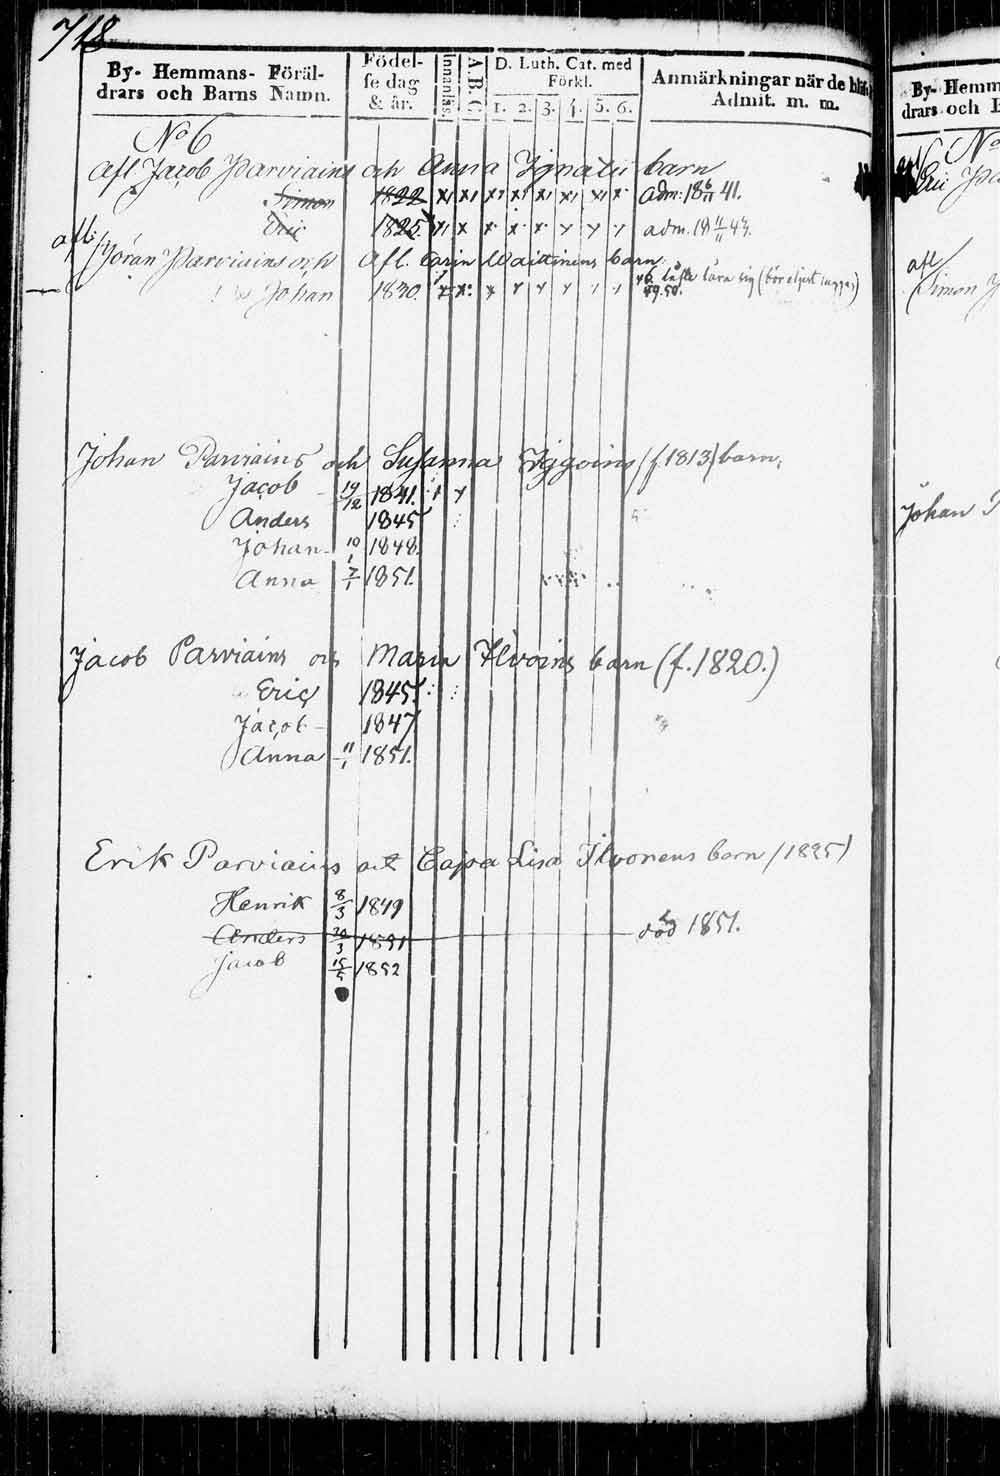 718
By- Hemmans- Föräl-
drars och Barns Namn.
Födel-
se dag
& år.
Innanläs.
A.B.C.
D. Luth. Cat. med
Förkl.
1. 2. 3. 4. 5. 6.
Anmärkningar när de
Admit. m. m.
No 6
Afl. Jacob Parviains och Anna Ignatii barn
Simon 1822 x x x x x x x x adm: 18 6/11 41.
Eric 1825 x x x x x x x x adm. 18 11/11 43.
afl:
Göran Parviains och Afl. Carin Waittinens barn
Johan 1830. x x x x x x 46 lära sig (bör
49.50.
Johan Parviains och Susanna Iggoins (f. 1813) barn,
Jacob 19/12 1841.
Anders 1845
Johan 10/1 1848.
Anna 7/1 1851.
Jacob Parviains och Maria Ilvoins barn (f. 1820.)
Eric 1845.
Jacob 1847
Anna 11/1 1851.
Erik Parviains och Cajsa Lisa Ilvonens barn (1825)
Henrik 8/3 1849
Anders 30/3 1851 död 1851.
Jacob 15/5 1852
By- Hemm
drars och
No
Eric Pa
afl
Simon
Johan P